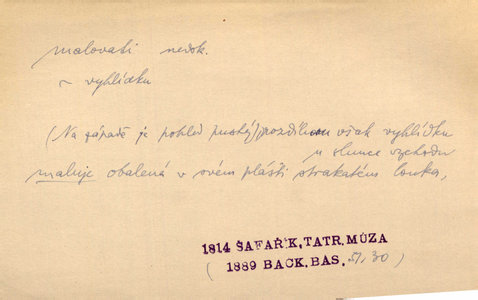 malovati nedok.
~ vyhlídku
(Na západě je pohled pustý) prozdilna však vyhlídku
u slunce východu
maluje obalená v svém plášti strakatém louka,
1814 ŠAFAŘÍK, TATR. MÚZA
( 1889 BACK. BÁS. 51, 30 )